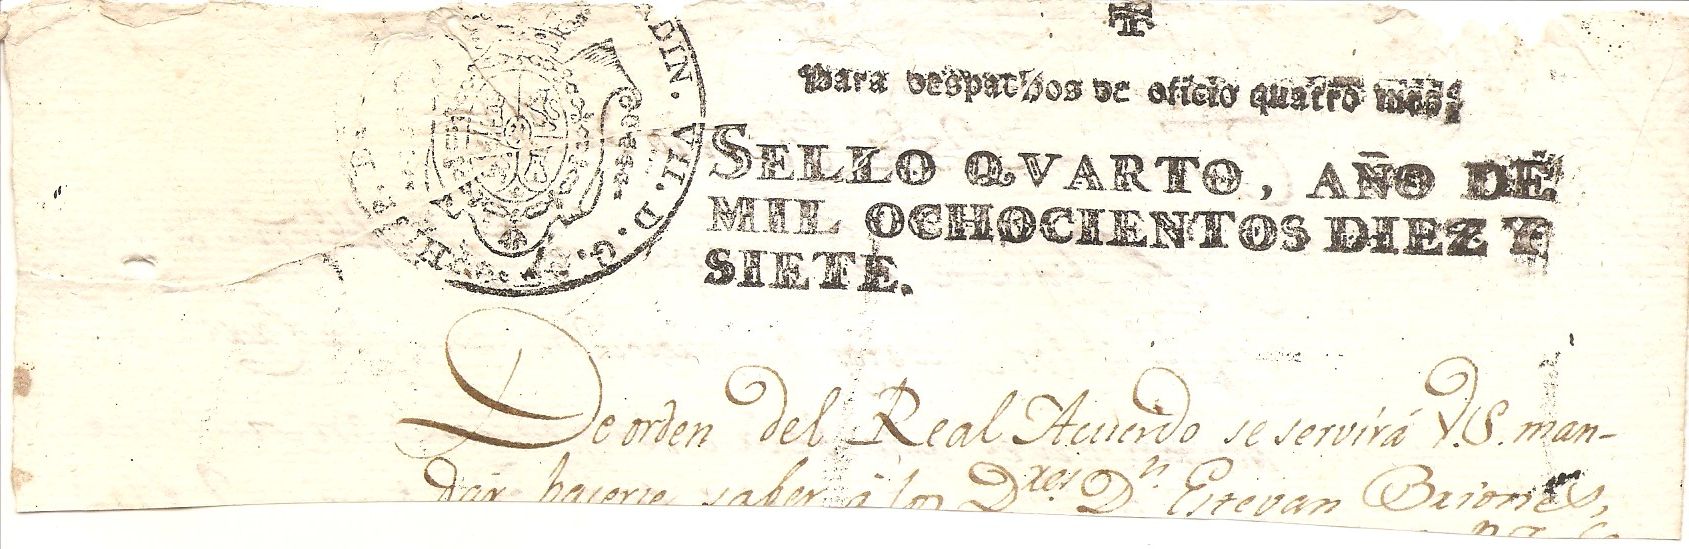 Para despachos de oficio quatro mrs.
SELLO QVARTO, AÑO DE
MIL OCHOCIENTOS DIEZ Y
SIETE.
DIN. VII. D. G.
De orden del Real Acuerdo se servirá V.S. man-
dar hacerse saber á los D.res D.n Estevan Briones,